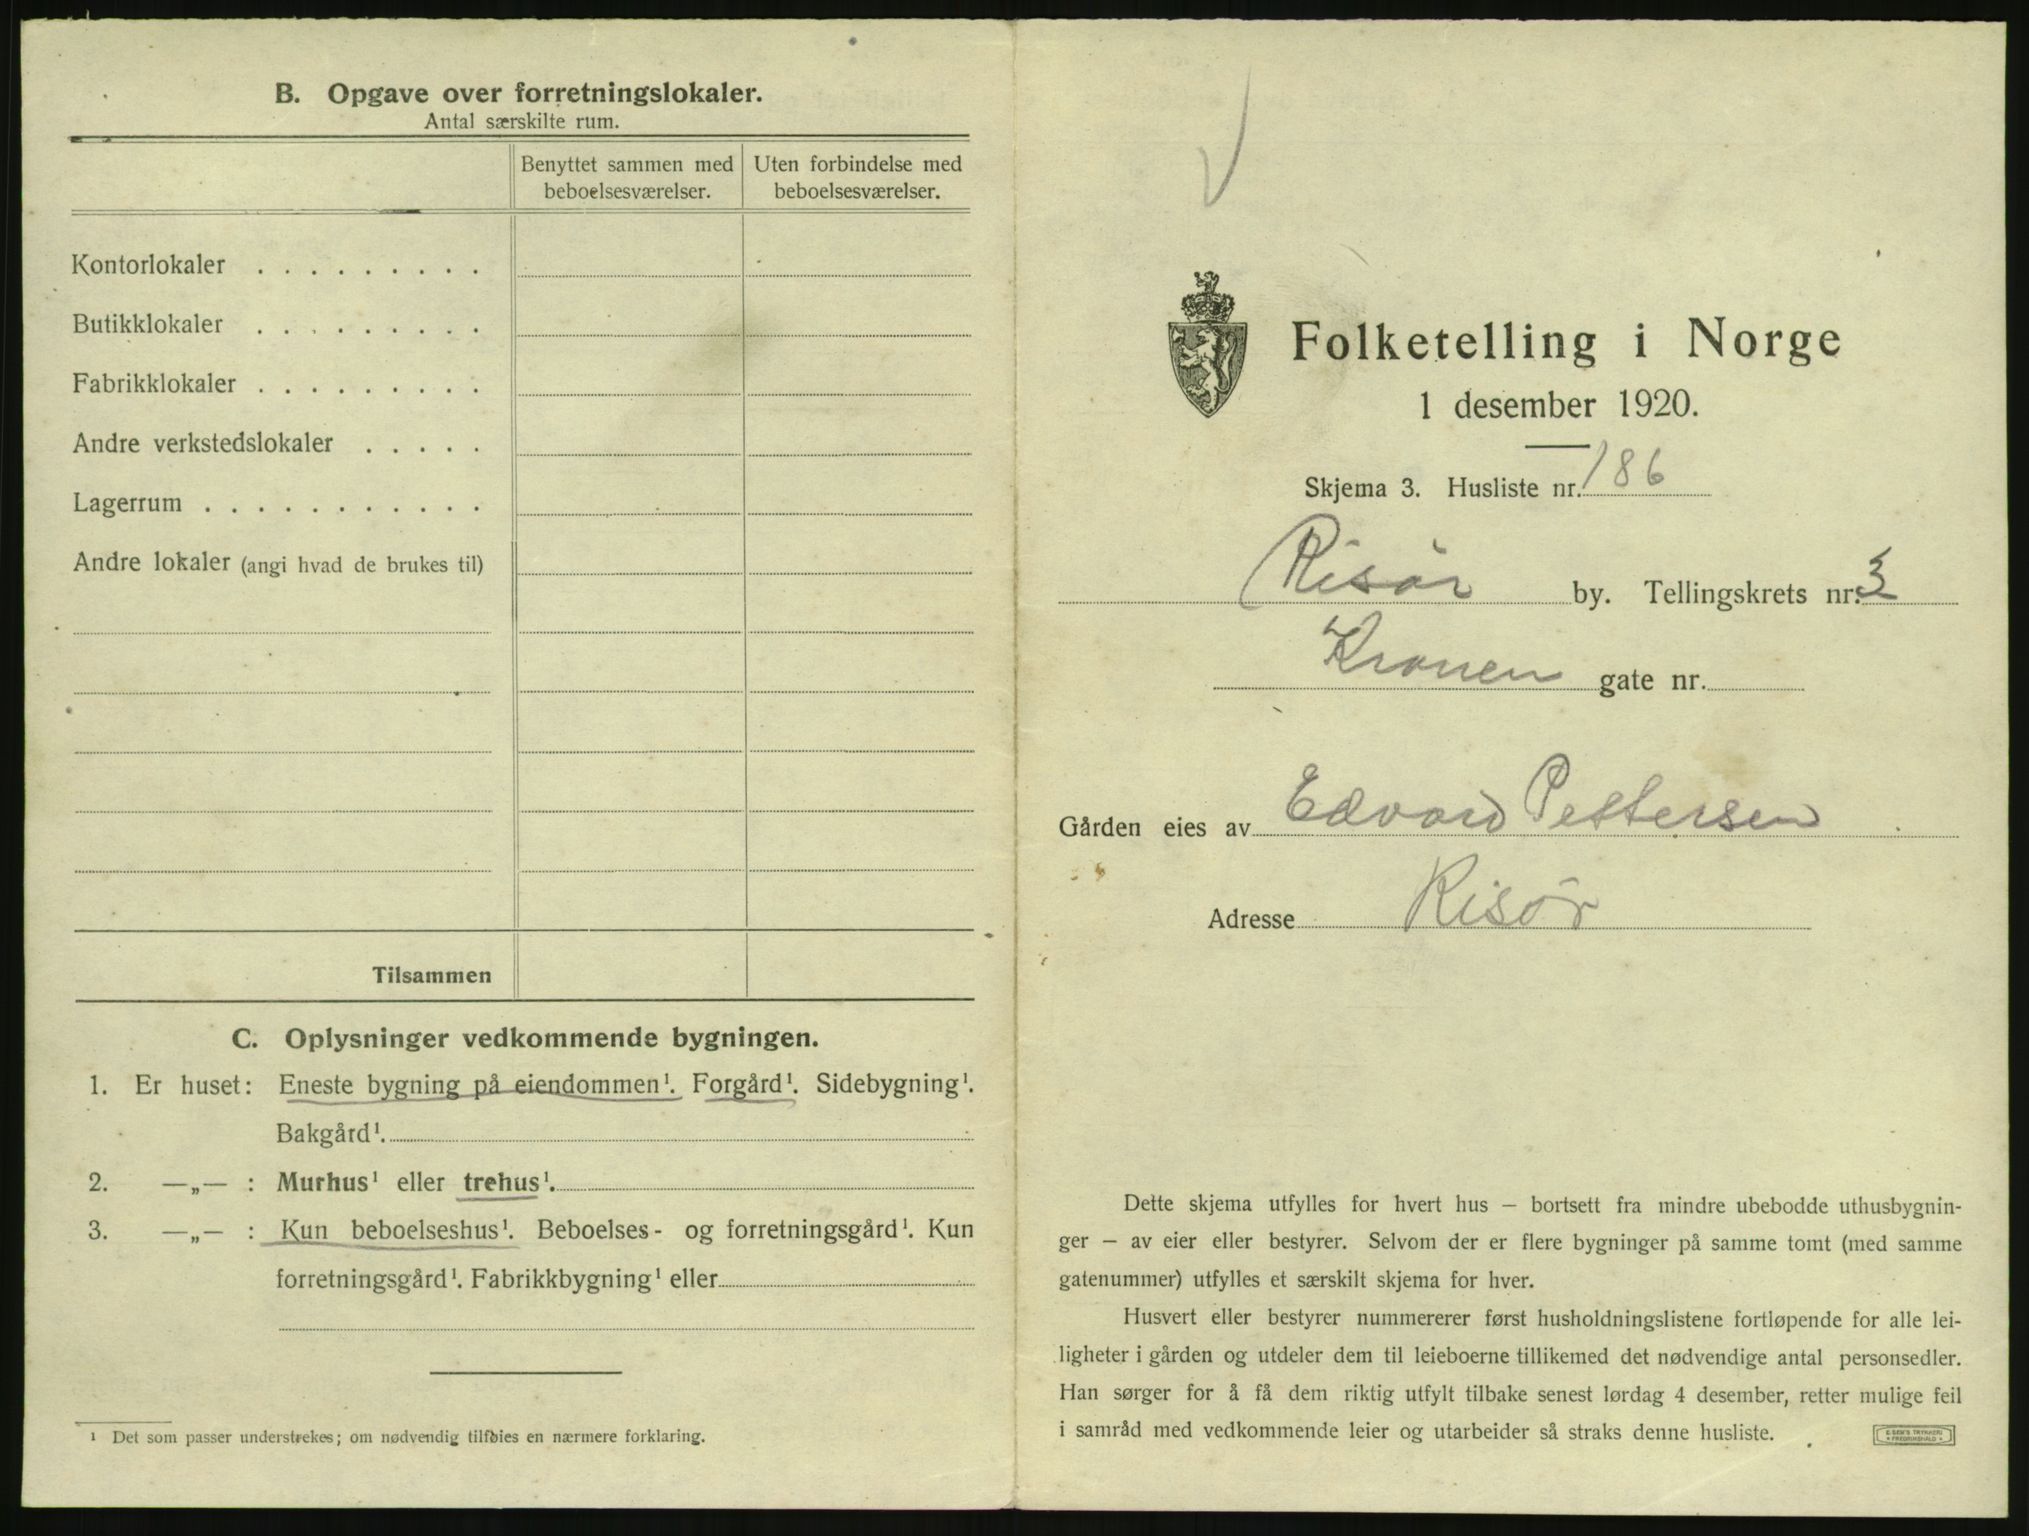 B. Opgave over forretningslokaler.
Antal særskilte rum.
Benyttet sammen med beboelsesværelser.
Uten forbindelse med beboelsesværelser.
Kontorlokaler . . . . . . . . .
Butikklokaler . . . . . . . . .
Fabrikklokaler . . . . . . . . .
Andre verkstedslokaler . . . . .
Lagerrum . . . . . . . . . . .
Andre lokaler (angi hvad de brukes til)
Tilsammen
C. Oplysninger vedkommende bygningen.
1. Er huset: Eneste bygning på eiendommen¹. Forgård¹. Sidebygning¹.
Bakgård¹.
2. —„— : Murhus¹ eller trehus¹.
3. —„— : Kun beboelseshus¹. Beboelses- og forretningsgård¹. Kun
forretningsgård¹. Fabrikkbygning¹ eller
¹ Det som passer understrekes; om nødvendig tilføies en nærmere forklaring.
Folketelling i Norge
1 desember 1920.
Skjema 3. Husliste nr. 186
Risør by. Tellingskrets nr. 3
Kronen gate nr.
Gården eies av Edvard Pettersen
Adresse Risør
Dette skjema utfylles for hvert hus – bortsett fra mindre ubebodde uthusbygnin-
ger – av eier eller bestyrer. Selvom der er flere bygninger på samme tomt (med samme
gatenummer) utfylles et særskilt skjema for hver.
Husvert eller bestyrer nummererer først husholdningslistene fortløpende for alle lei-
ligheter i gården og utdeler dem til leieboerne tillikemed det nødvendige antal personsedler.
Han sørger for å få dem riktig utfylt tilbake senest lørdag 4 desember, retter mulige feil
i samråd med vedkommende leier og utarbeider så straks denne husliste.